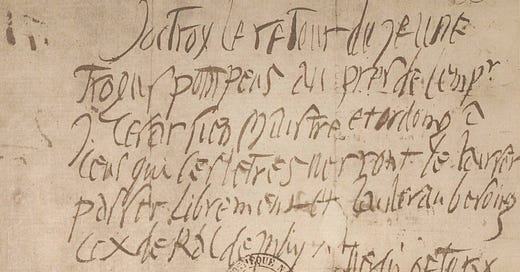 Joctroy le retour du jeune
Trogus pompeus au pres de lempr
J. Cesar sien Maistre et ordong a
ceus qui ces letres verront le laysser
passer librement et laider au besoing
Ce X de Kal de